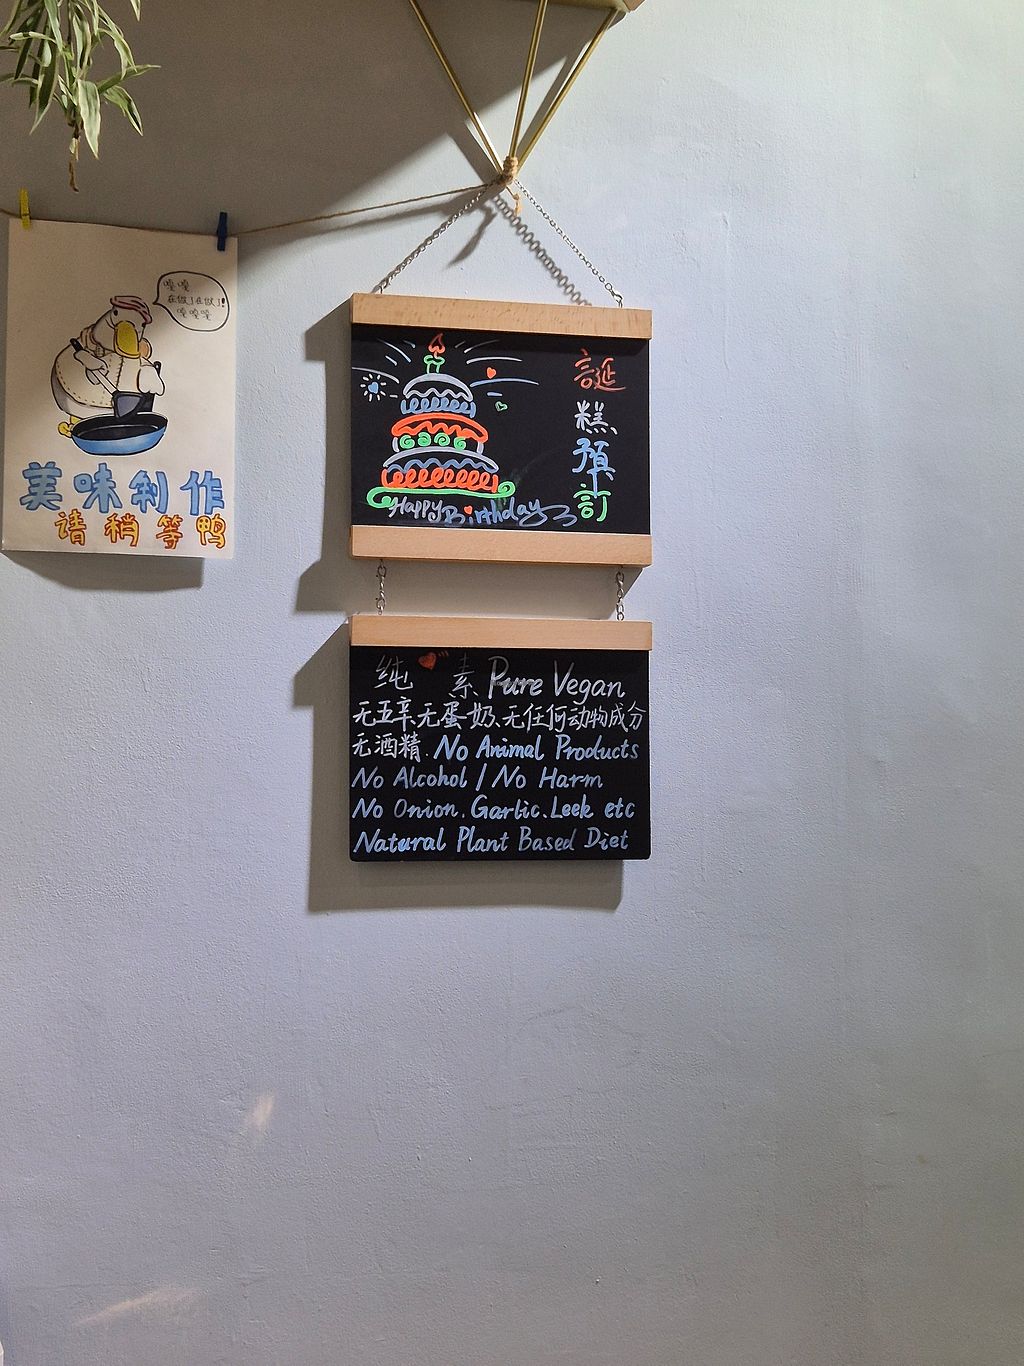 嘎嘎
在做了在做了!
嘎嘎嘎
美味制作
请稍等鸭
誕糕預訂
Happy Birthday
纯素 Pure Vegan
无五辛、无蛋奶、无任何动物成分
无酒精. No Animal Products
No Alcohol / No Harm
No Onion, Garlic, Leek etc
Natural Plant Based Diet